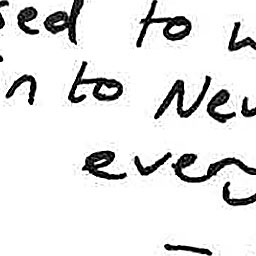 sed to w
in to New
every